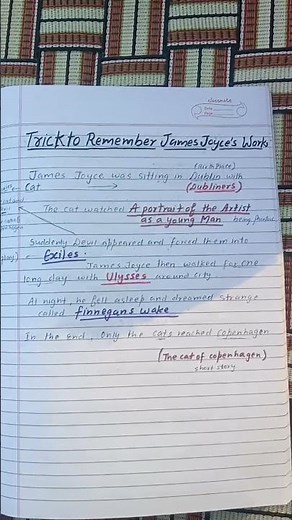 Trick to Remember James Joyce's Works
(birth Place)
James Joyce was sitting in Dublin with
Cat → (Dubliners)
The cat watched A portrait of the Artist
as a young Man being Painted
Suddenly Devil appeared and forced them into
Exiles.
James Joyce then walked for one
long day with Ulysses around city.
At night, he fell asleep and dreamed strange
called finnegans wake
In the End, Only the cats reached copenhagen
(The cat of copenhagen)
short story